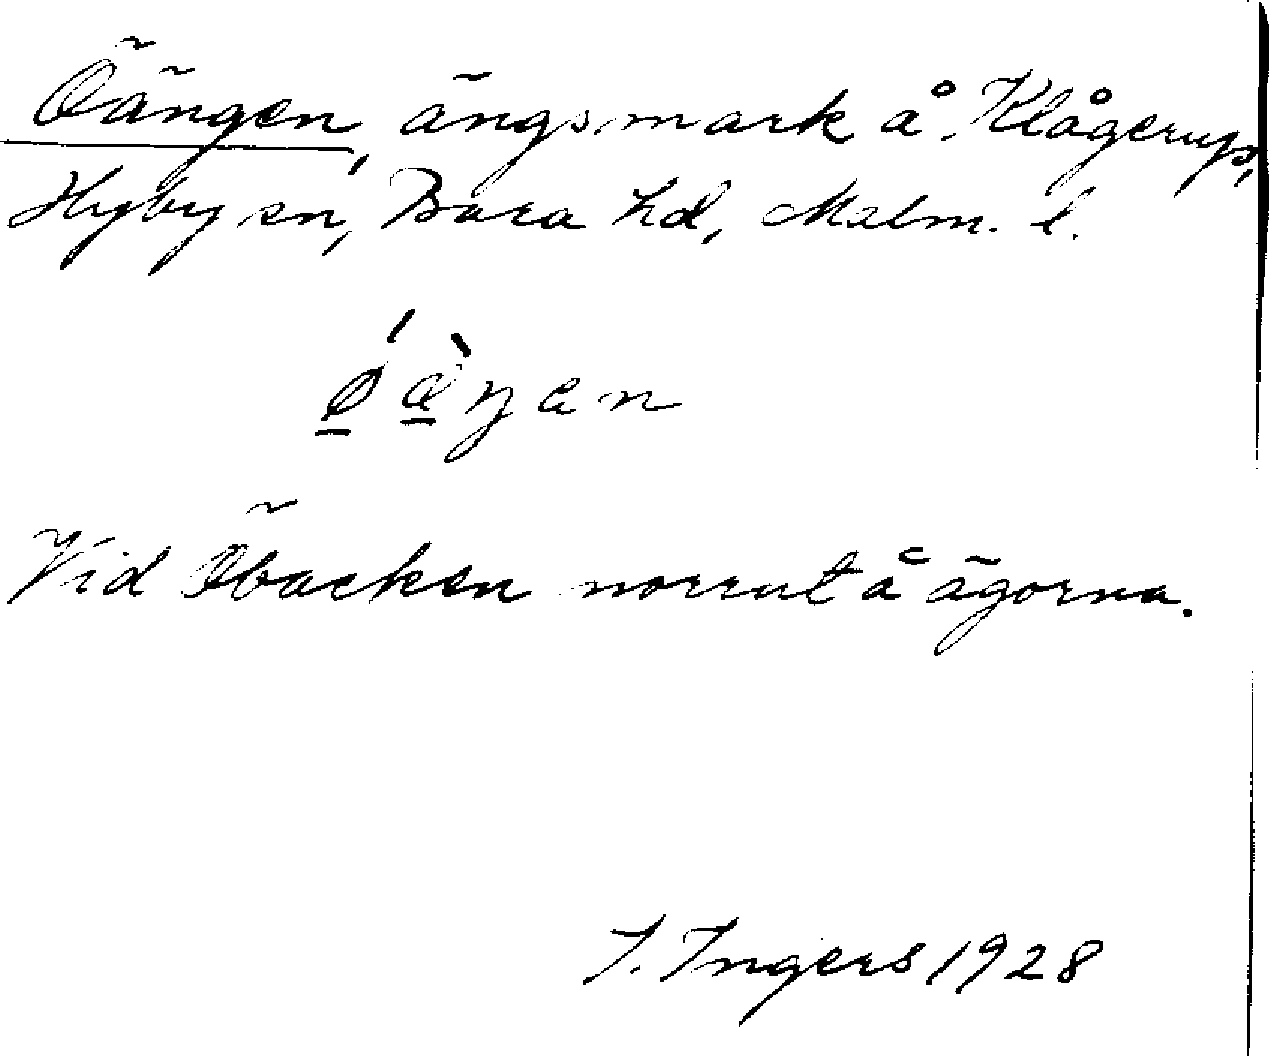 Öängen, ängsmark å Klågerup,
Hyby sn, Bara hd, Malm. l.
ǿ æ̀ŋen
Vid Öbacken norrut å ägorna.
I. Ingers 1928